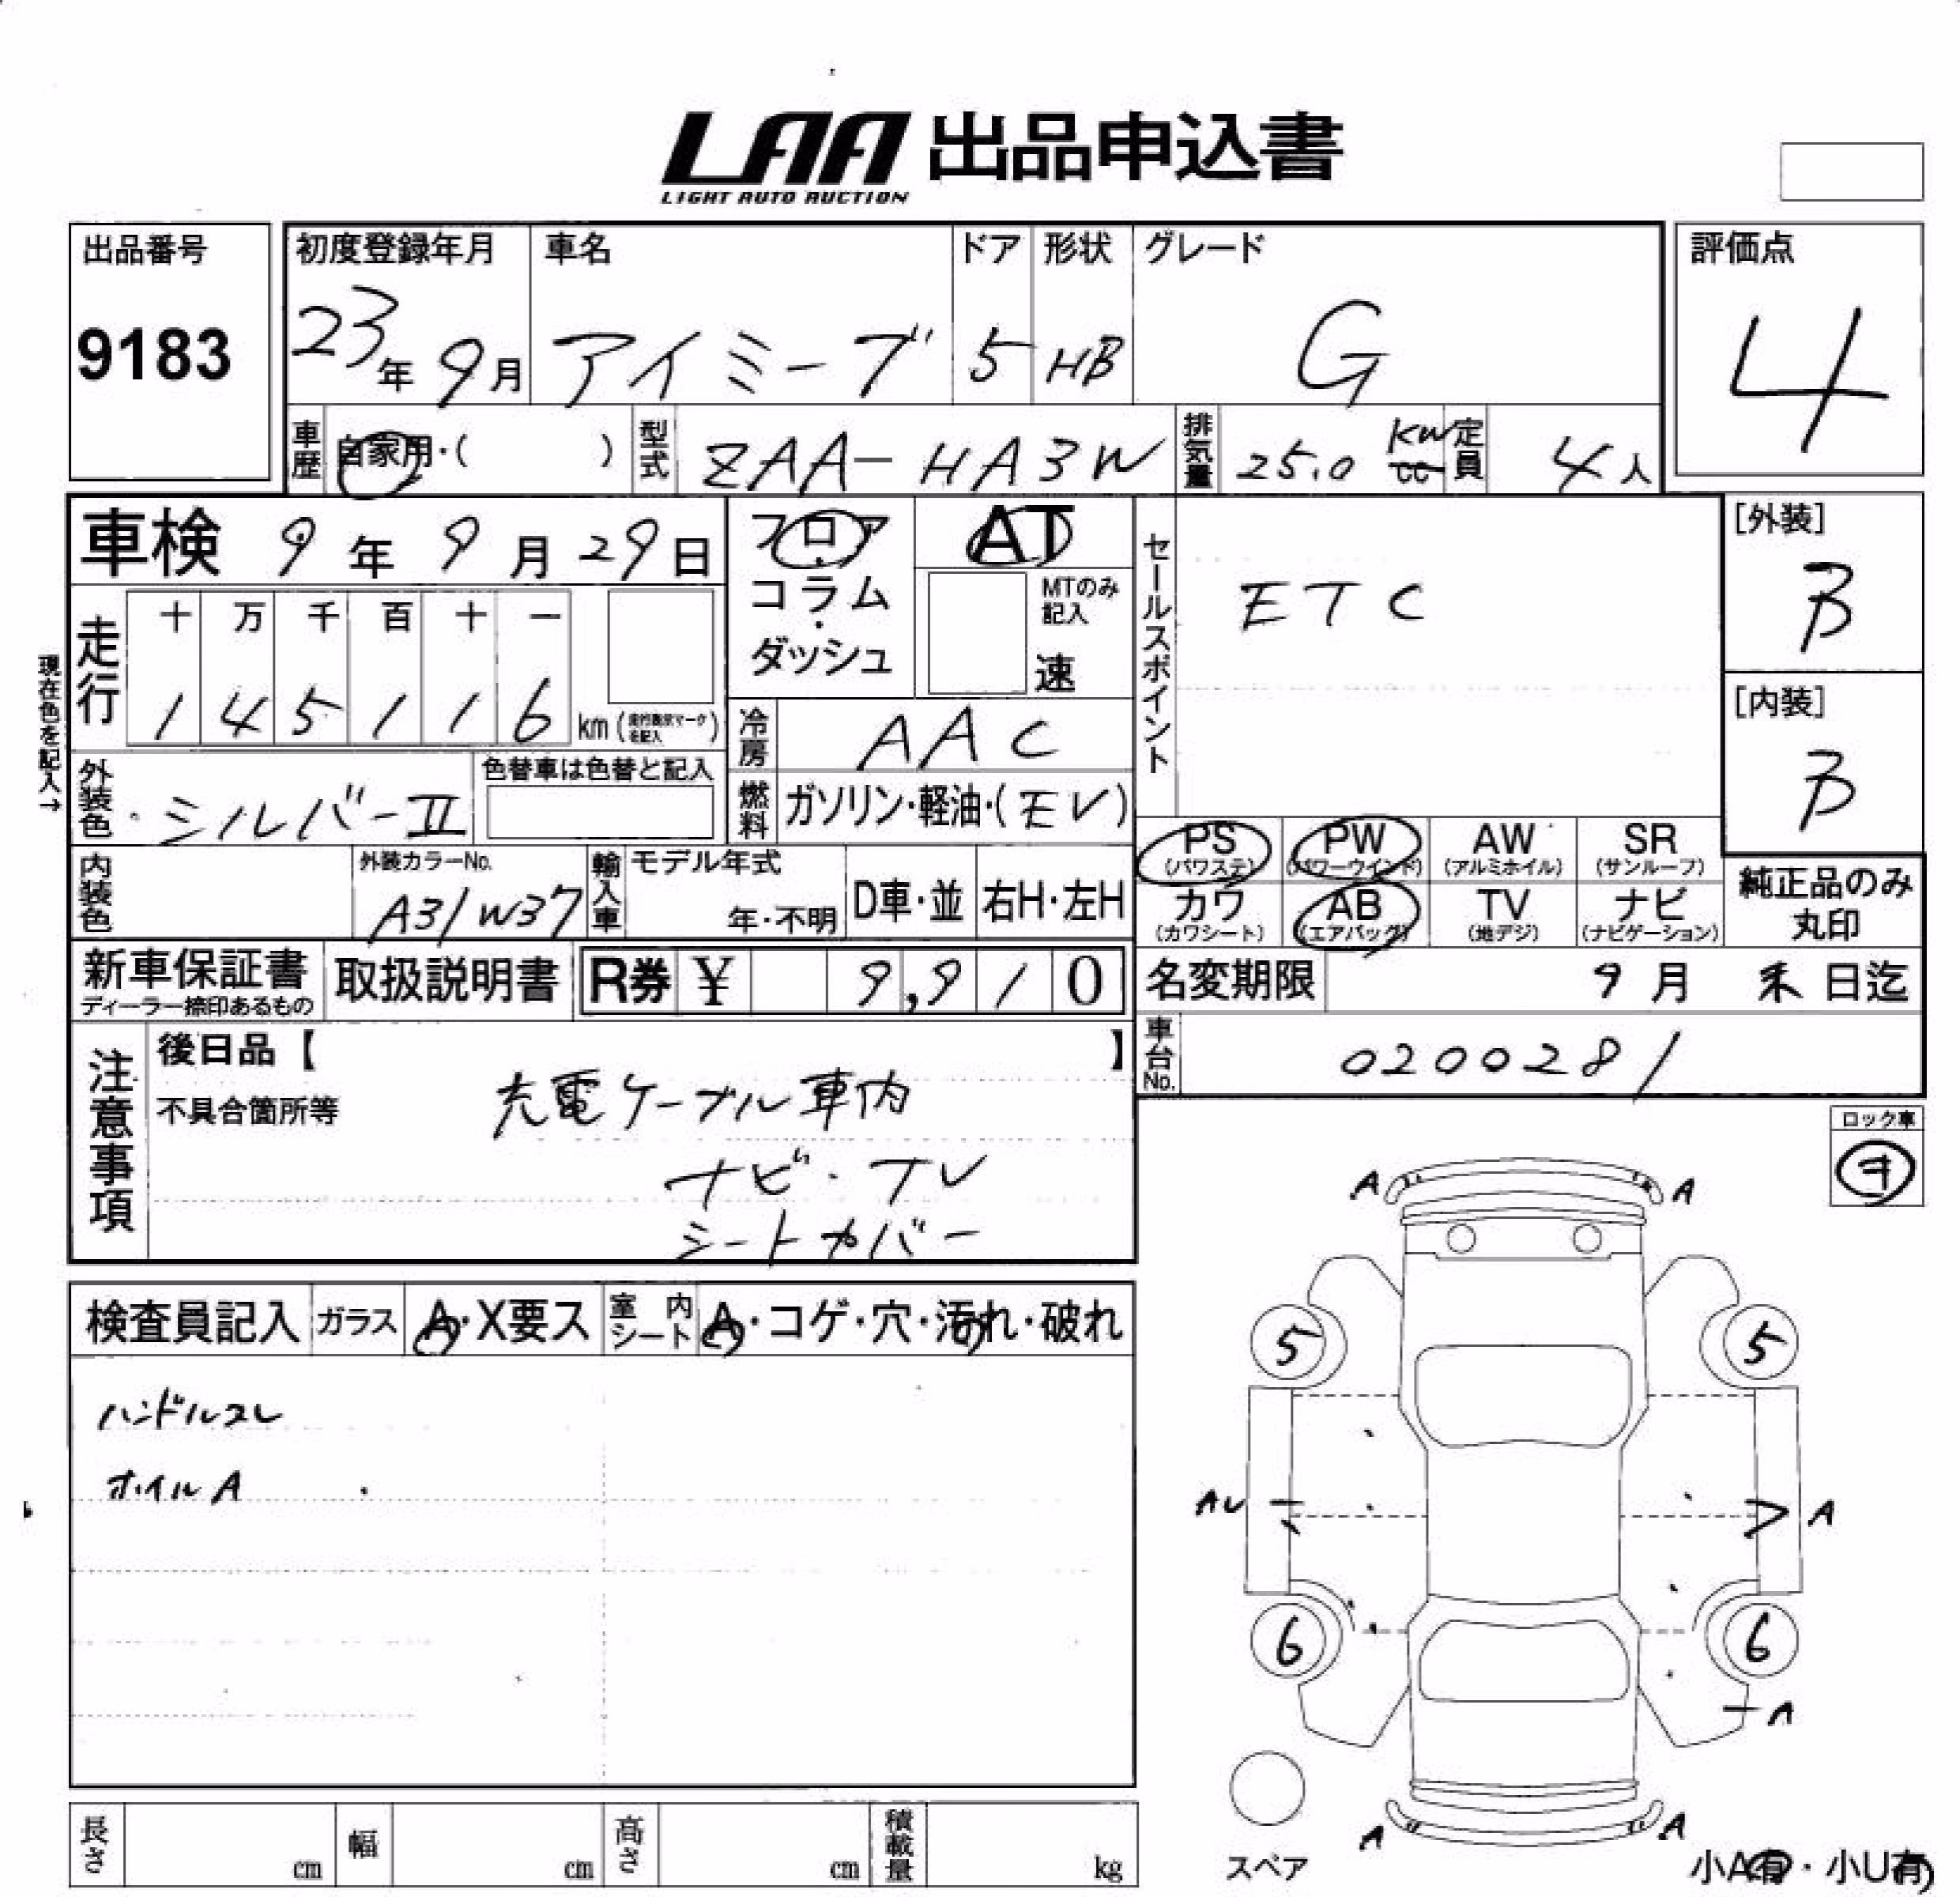 LAA 出品申込書
LIGHT AUTO AUCTION
出品番号
9183
初度登録年月
23年 9月
車名
アイミーブ
ドア
5
形状
HB
グレード
G
評価点
4
車歴
自家用・( )
型式
ZAA-HA3W
排気量
25.0 KW
cc
定員
4人
車検 9年 9月 29日
フロア・コラム・ダッシュ
AT
MTのみ記入
速
セールスポイント
ETC
[外装]
B
[内装]
B
現在色を記入→
走行
十 万 千 百 十 一
1 4 5 1 1 6 km (走行表示マークを記入)
冷房
AAC
外装色
シルバーII
色替車は色替と記入
燃料
ガソリン・軽油・(EV)
PS (パワステ)
PW (パワーウインド)
AW (アルミホイル)
SR (サンルーフ)
カワ (カワシート)
AB (エアバッグ)
TV (地デジ)
ナビ (ナビゲーション)
純正品のみ丸印
内装色
外装カラーNo.
A31/W37
輸入車
モデル年式
年・不明
D車・並
右H・左H
新車保証書
ディーラー捺印あるもの
取扱説明書
R券 ¥ 9,910
名変期限 9月 末日迄
車台No.
0200281
注意事項
後日品【 】
不具合箇所等
充電ケーブル車内
ナビ・TV
シートカバー
ロック車
キ
検査員記入
ガラス
A・X要ス
室内シート
A・コゲ・穴・汚れ・破れ
ハンドルスレ
ホイルA
A A
5 5
AU A
6 6
A
A A
スペア
小A有・小U有
長さ cm
幅 cm
高さ cm
積載量 kg